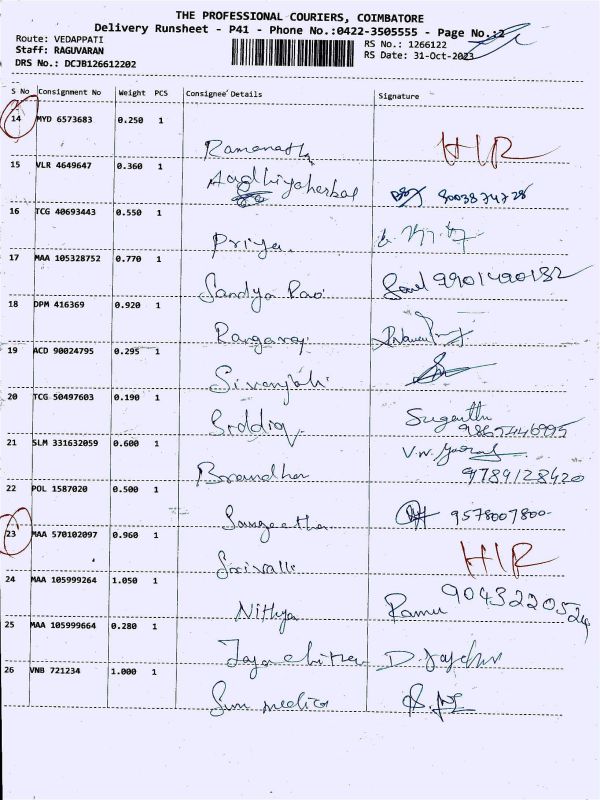 THE PROFESSIONAL COURIERS, COIMBATORE
Delivery Runsheet - P41 - Phone No.:0422-3505555 - Page No.:2
Route: VEDAPPATI
Staff: RAGUVARAN
DRS No.: DCJB126612202
RS No.: 1266122
RS Date: 31-Oct-2023
S No Consignment No Weight PCS Consignee Details Signature
14 MYD 6573683 0.250 1 Ramanatha HIR
15 VLR 4649647 0.360 1 Aadhiyaherbal 8003874728
16 TCG 40693443 0.550 1 Priya
17 MAA 105328752 0.770 1 Sandya Rao 9901490132
18 DPM 416369 0.920 1 Rangaraj
19 ACD 90024795 0.295 1
20 TCG 50497603 0.190 1 Siddiq Suganthi 9865446995
21 SLM 331632059 0.600 1 Brandhan V.N. 9789128420
22 POL 1587020 0.500 1 Sangeetha 9578007800
23 MAA 570102097 0.960 1 Srivalli HIR
24 MAA 105999264 1.050 1 Nithya Ramu 9043220524
25 MAA 105999664 0.280 1 Jaya chitra
26 VNB 721234 1.000 1 Sun medico